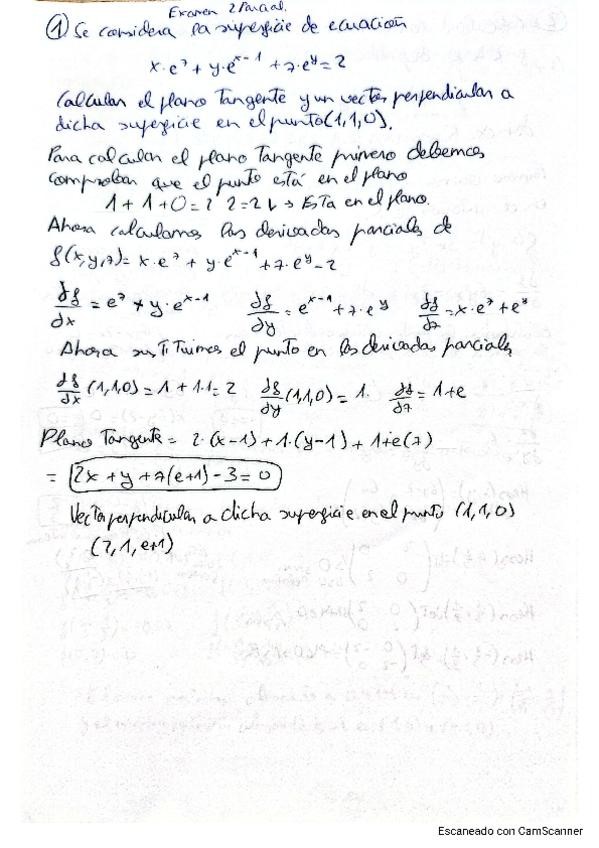 Examen 2 Parcial.
① Se considera la superficie de ecuación
x·e^z + y·e^{x-1} + z·e^y = 2
Calcular el plano Tangente y un vector perpendicular a
dicha superficie en el punto (1,1,0).
Para calcular el plano Tangente primero debemos
comprobar que el punto está en el plano
1 + 1 + 0 = 2 2 = 2 ↓ → Esta en el plano.
Ahora calculamos las derivadas parciales de
f(x,y,z) = x·e^z + y·e^{x-1} + z·e^y - 2
∂f/∂x = e^z + y·e^{x-1} ∂f/∂y = e^{x-1} + z·e^y ∂f/∂z = x·e^z + e^y
Ahora sustituimos el punto en las derivadas parciales
∂f/∂x (1,1,0) = 1 + 1·1 = 2 ∂f/∂y (1,1,0) = 1. ∂f/∂z = 1+e
Plano Tangente = 2·(x-1) + 1·(y-1) + 1+e(z)
= 2x + y + z(e+1) - 3 = 0
Vector perpendicular a dicha superficie en el punto (1,1,0)
(2,1,e+1)
Escaneado con CamScanner